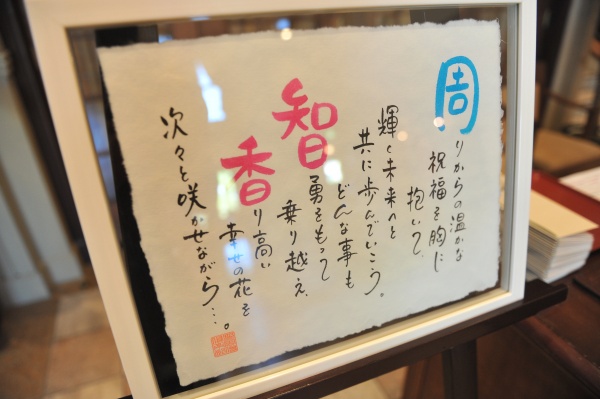 周りからの温かな
祝福を胸に
抱いて、
輝く未来へと
共に歩んでいこう。
どんな事も
智勇をもって
乗り越え、
香り高い
幸せの花を
次々と咲かせながら…。